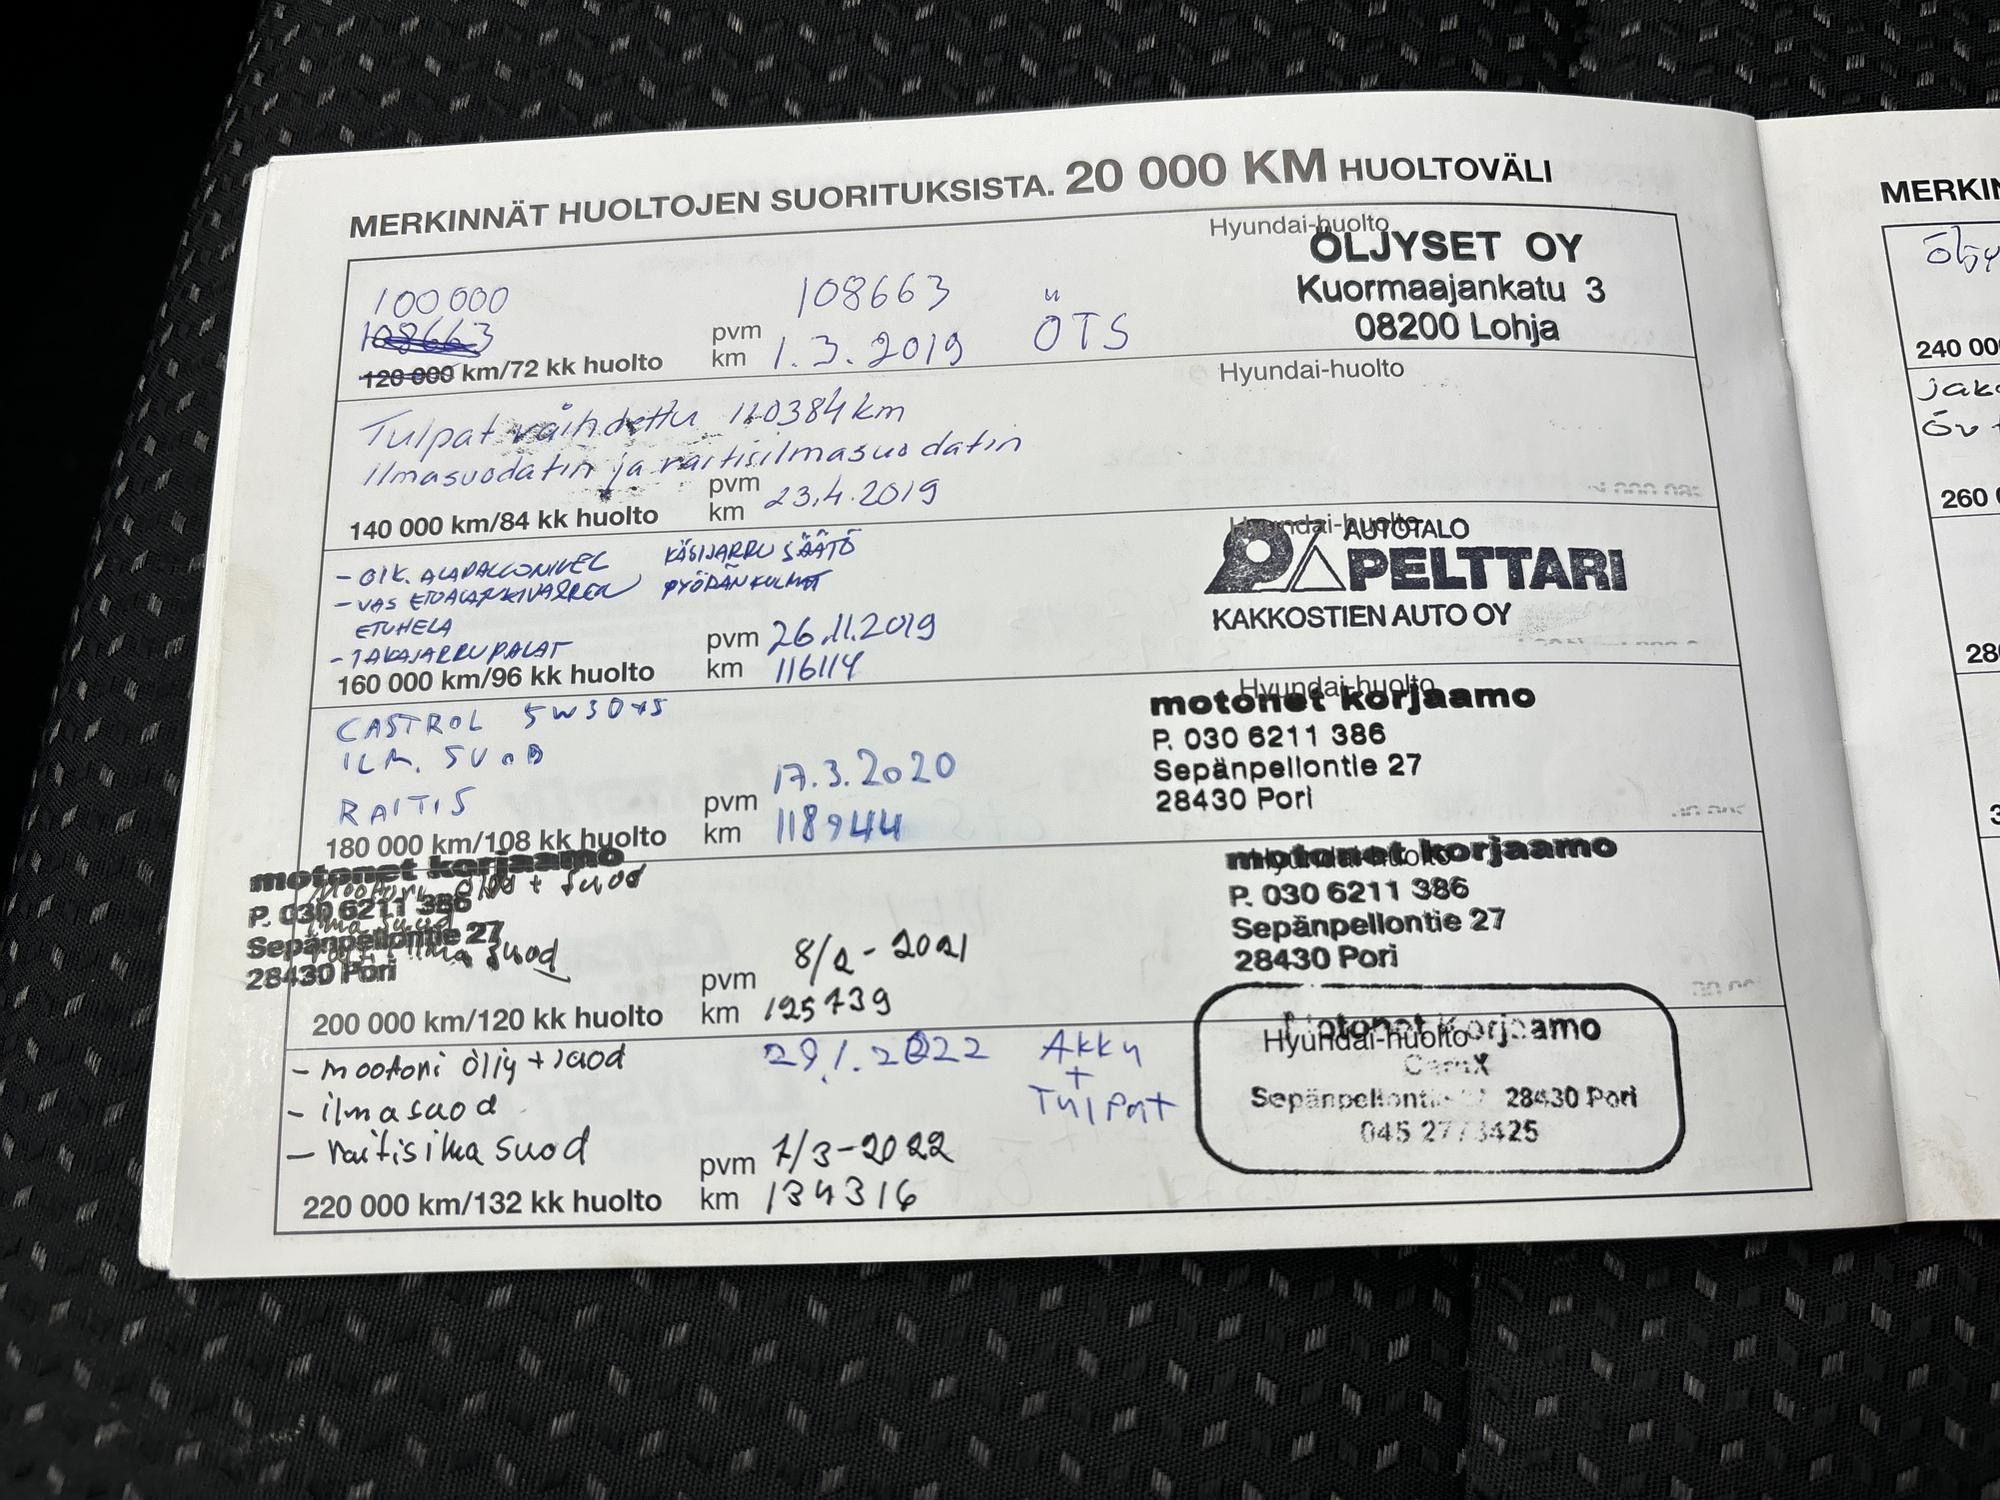 MERKINNÄT HUOLTOJEN SUORITUKSISTA. 20 000 KM HUOLTOVÄLI
Hyundai-huolto
ÖLJYSET OY
Kuormaajankatu 3
08200 Lohja
100 000
108663
120 000 km/72 kk huolto
108663
pvm
km 1.3.2019
ÖTS
Hyundai-huolto
Tulpat vaihdettu 110384 km
ilmasuodatin ja raitisilmasuodatin
140 000 km/84 kk huolto
pvm 23.4.2019
km
Hyundai-huolto
AUTOTALO
PELTTARI
KAKKOSTIEN AUTO OY
- OIK. ALAPALLONIVEL
- VAS ETUALATUKIVARREN
ETUHELA
- TAKAJARRUPALAT
KÄSIJARRU SÄÄTÖ
PYÖRÄNKULMAT
160 000 km/96 kk huolto
pvm 26.11.2019
km 116114
Hyundai-huolto
motonet korjaamo
P. 030 6211 386
Sepänpellontie 27
28430 Pori
CASTROL 5W30
ILM. SUOD
RAITIS
180 000 km/108 kk huolto
pvm 17.3.2020
km 118944
motonet korjaamo
P. 030 6211 386
Sepänpellontie 27
28430 Pori
+ suod
ilma suod
200 000 km/120 kk huolto
pvm 8/2-2021
km 125739
Hyundai-huolto
motonet korjaamo
P. 030 6211 386
Sepänpellontie 27
28430 Pori
- moottori öljy + suod
- ilmasuod
- raitisilma suod
29.1.2022
Akku
+
Tulpat
220 000 km/132 kk huolto
pvm 1/3-2022
km 134316
Hyundai-huolto
Motonet Korjaamo
Sepänpellontie 28430 Pori
MERKIN
240 00
jak
Öv +
260
28
3